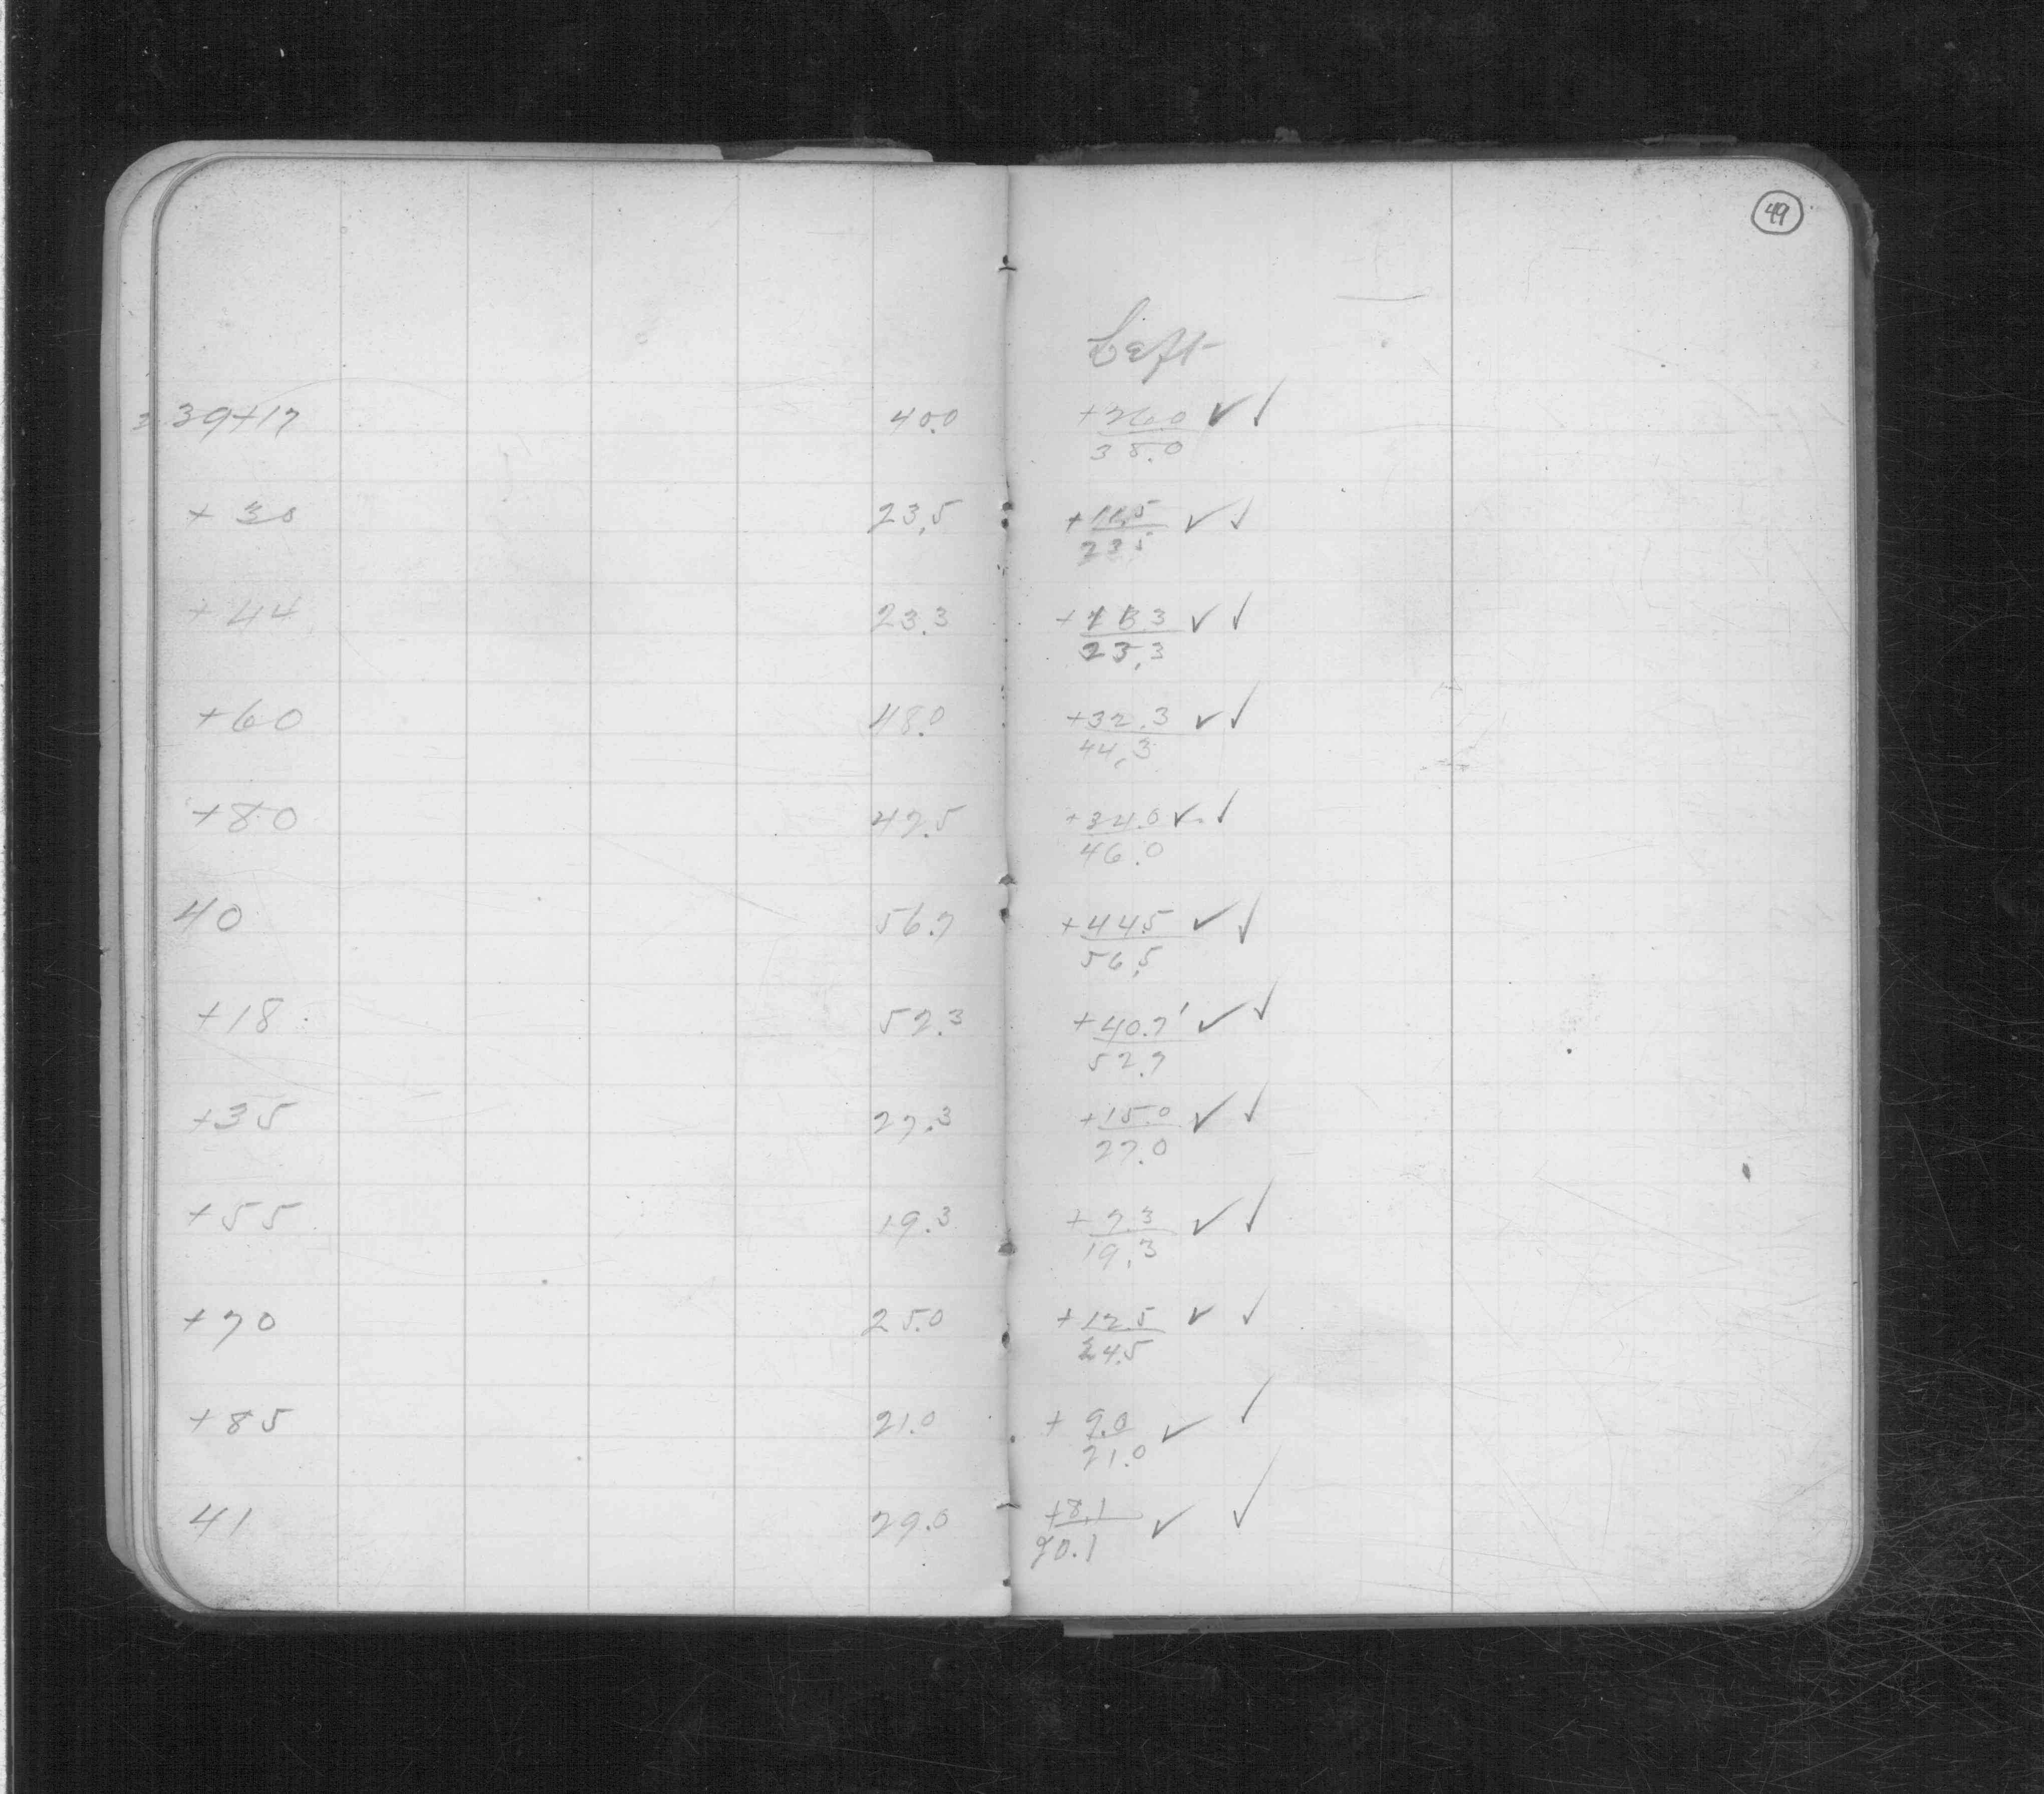 49
Left
339+17 40.0 +26.0 ✓ ✓
38.0
+30 23.5 +11.5 ✓ ✓
23.5
+44 23.3 + 3.3 ✓ ✓
23.3
+60 48.0 +32.3 ✓ ✓
44.3
+80 47.5 +34.0 ✓ ✓
46.0
40 56.7 +44.5 ✓ ✓
56.5
+18 52.3 +40.7' ✓ ✓
52.7
+35 27.3 +15.0 ✓ ✓
27.0
+55 19.3 + 7.3 ✓ ✓
19.3
+70 25.0 +12.5 ✓ ✓
24.5
+85 21.0 + 9.0 ✓ ✓
21.0
41 29.0 +8.1 ✓ ✓
20.1